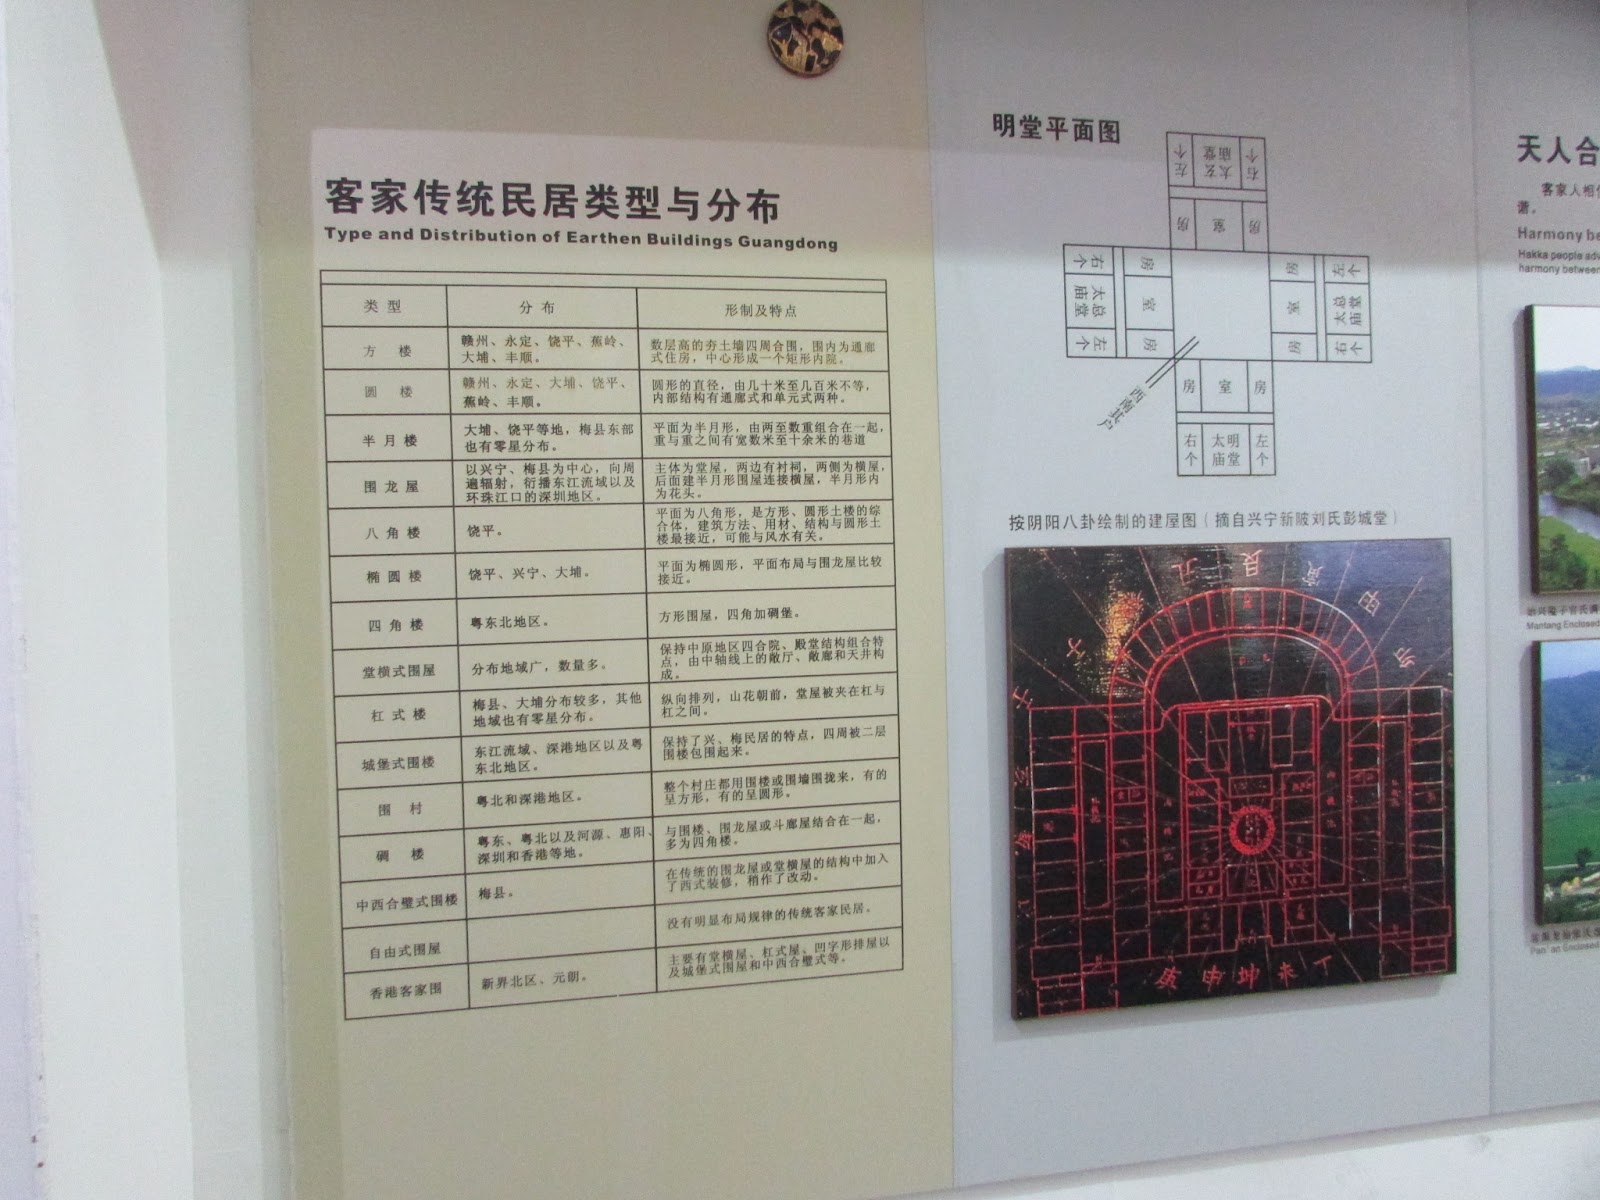 客家传统民居类型与分布
Type and Distribution of Earthen Buildings Guangdong
类型 分布 形制及特点
方楼 赣州、永定、饶平、蕉岭、
大埔、丰顺。
数层高的夯土墙四周合围，围内为通廊
式住房，中心形成一个矩形内院。
圆楼 赣州、永定、大埔、饶平、
蕉岭、丰顺。
圆形的直径，由几十米至几百米不等，
内部结构有通廊式和单元式两种。
半月楼 大埔、饶平等地，梅县东部
也有零星分布。
平面为半月形，由两至数重组合在一起，
重与重之间有宽数米至十余米的巷道
围龙屋 以兴宁、梅县为中心，向周
遍辐射，衍播东江流域以及
环珠江口的深圳地区。
主体为堂屋，两边有衬祠，两侧为横屋，
后面建半月形围屋连接横屋，半月形内
为花头。
八角楼 饶平。
平面为八角形，是方形、圆形土楼的综
合体，建筑方法、用材、结构与圆形土
楼最接近，可能与风水有关。
椭圆楼 饶平、兴宁、大埔。
平面为椭圆形，平面布局与围龙屋比较
接近。
四角楼 粤东北地区。
方形围屋，四角加碉堡。
堂横式围屋 分布地域广，数量多。
保持中原地区四合院、殿堂结构组合特
点，由中轴线上的敞厅、敞廊和天井构
成。
杠式楼 梅县、大埔分布较多，其他
地域也有零星分布。
纵向排列，山花朝前，堂屋被夹在杠与
杠之间。
城堡式围楼 东江流域、深港地区以及粤
东北地区。
保持了兴、梅民居的特点，四周被二层
围楼包围起来。
围村 粤北和深港地区。
整个村庄都用围楼或围墙围拢来，有的
呈方形，有的呈圆形。
碉楼 粤东、粤北以及河源、惠阳、
深圳和香港等地。
与围楼、围龙屋或斗廊屋结合在一起，
多为四角楼。
中西合璧式围楼 梅县。
在传统的围龙屋或堂横屋的结构中加入
了西式装修，稍作了改动。
自由式围屋
没有明显布局规律的传统客家民居。
香港客家围 新界北区、元朗。
主要有堂横屋、杠式屋、凹字形排屋以
及城堡式围屋和中西合璧式等。
明堂平面图
左个 太玄庙堂 右个
房 室 房
右个 太总庙堂 左个
房 室 房
房 室 房
左个 太总庙堂 右个
西南其户
房 室 房
右个 太明庙堂 左个
按阴阳八卦绘制的建屋图（摘自兴宁新陂刘氏彭城堂）
艮
寅
甲
卯
庚 申 坤 未 丁
天人合
客家人相信
谐。
Harmony be
Hakka people adv
harmony between
Mantang Enclosed